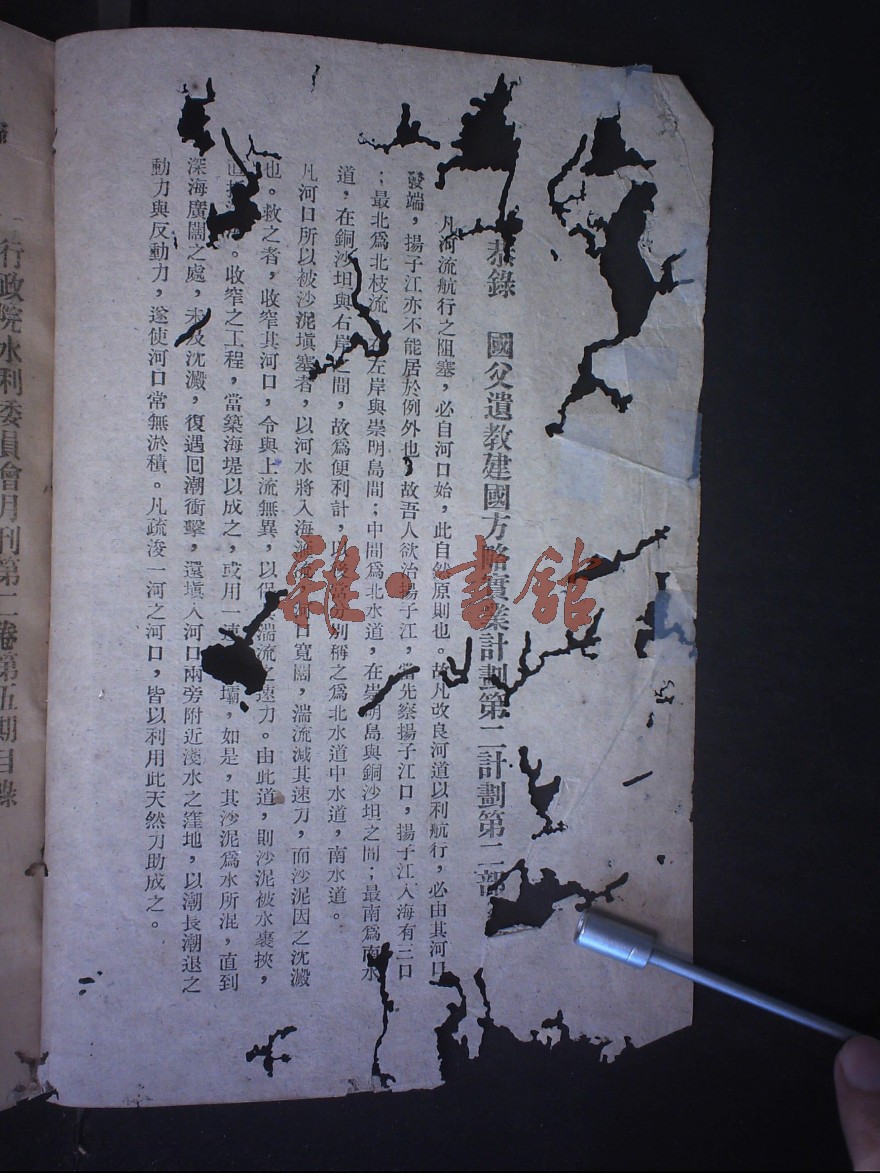 恭錄　國父遺教建國方略實業計劃第二計劃第二部
凡河流航行之阻塞，必自河口始，此自然原則也。故凡改良河道以利航行，必由其河口
發端，揚子江亦不能居於例外也，故吾人欲治揚子江，當先察揚子江口，揚子江入海有三口
；最北爲北枝流，在左岸與崇明島間；中間爲北水道，在崇明島與銅沙坦之間；最南爲南水
道，在銅沙坦與右岸之間，故爲便利計，以後當分別稱之爲北水道中水道，南水道。
凡河口所以被沙泥塡塞者，以河水將入海，河口寬闊，湍流減其速力，而沙泥因之沈澱
也。救之者，收窄其河口，令與上流無異，以保其湍流之速力。由此道，則沙泥被水裹挾，
直。收窄之工程，當築海堤以成之，或用一壩，如是，其沙泥爲水所混，直到
深海廣闊之處，未及沈澱，復遇囘潮衝擊，還塡入河口兩旁附近淺水之窪地，以潮長潮退之
動力與反動力，遂使河口常無淤積。凡疏浚一河之河口，皆以利用此天然力助成之。
行政院水利委員會月刊第二卷第五期目錄
雜·書館